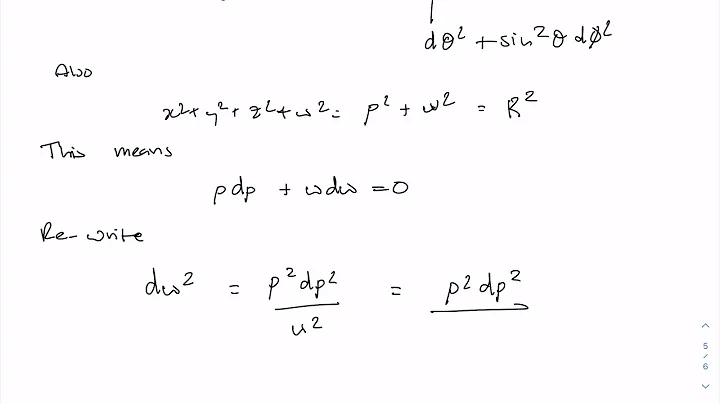 dθ² + sin²θ dϕ²
Also
x² + y² + z² + ω² = ρ² + ω² = R²
This means
ρdρ + ωdω = 0
Re-write
dω² = ρ²dρ² / ω² = ρ²dρ²
5
/
6